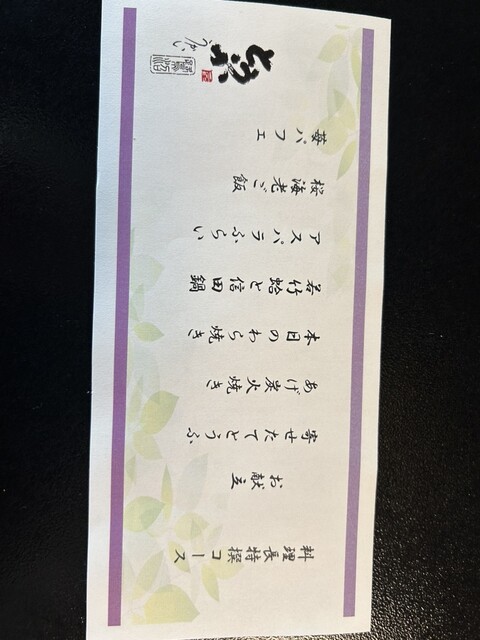 料理長特撰コース
お献立
寄せたてとうふ
あげ炭火焼き
本日のわら焼き
若竹蛤と信田鍋
アスパラふらい
桜海老ご飯
苺パフェ